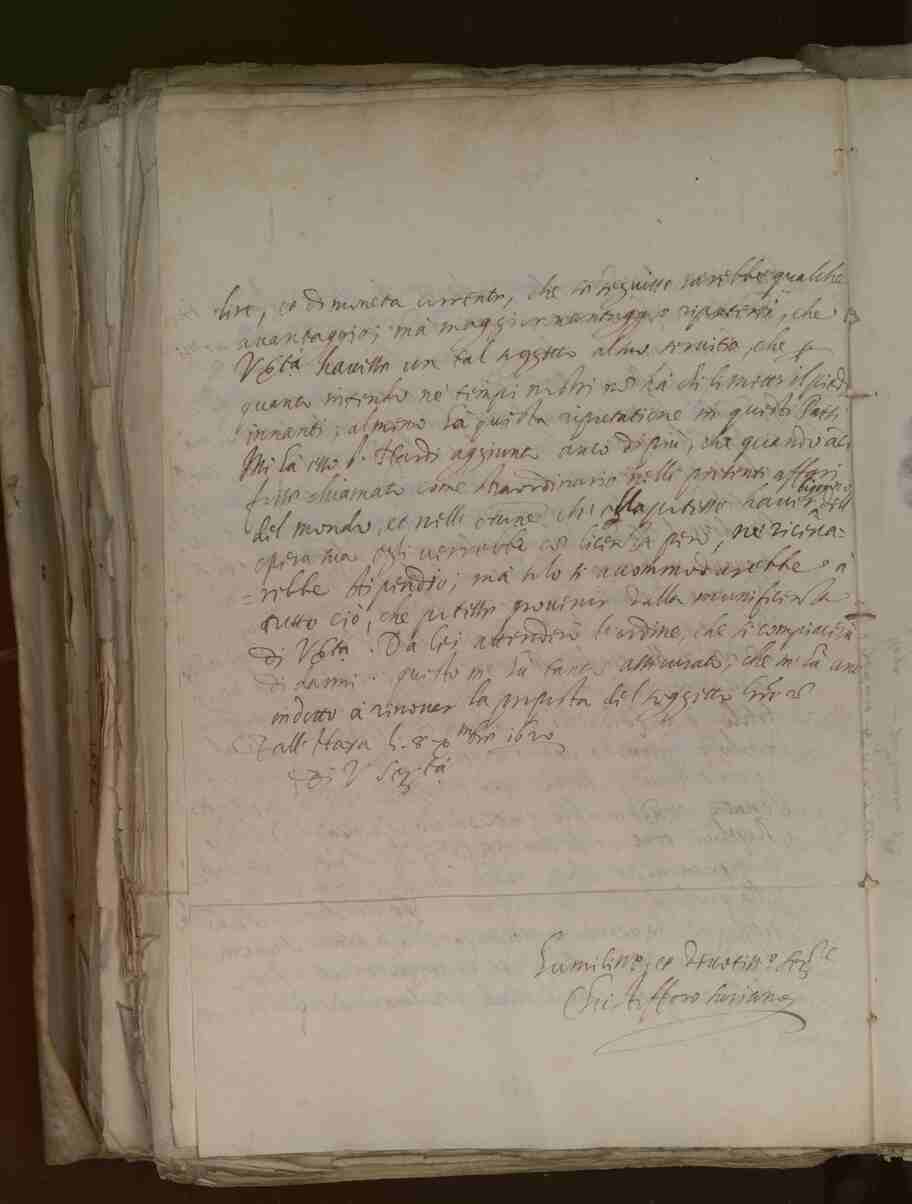 lire, et di moneta corrente, che in seguito sarebbe qualche
avantaggio; ma maggior vantaggio riputerei, che
V Stà havesse un tal soggetto al suo servitio, che per
quanto intendo ne tempi nostri non ha chi li metti il piede
innanti; almeno ha questa riputatione in questi Paesi.
Mi ha esso Sr. aggiunto anco di più, che quando anco
fusse chiamato come straordinario nelli presenti affari
del mondo, et nelle che ella potesse haver bisogno dell
opera sua egli verrebbe con licenza però, ne ricerca=
=rebbe stipendio; ma solo si accommodarebbe à
tutto ciò, che potesse provenir dalla munificenza
di V Stà. Da lei attenderò l'ordine, che si compiacerà
di darmi. questo mi ha tanto assicurato, che mi ha
indotto à rinovar la proposta del soggetto
Dall'Haya li 8 1620
Di V Sertà
Humilissimo, et devotissimo serre
Christofforo Suriano